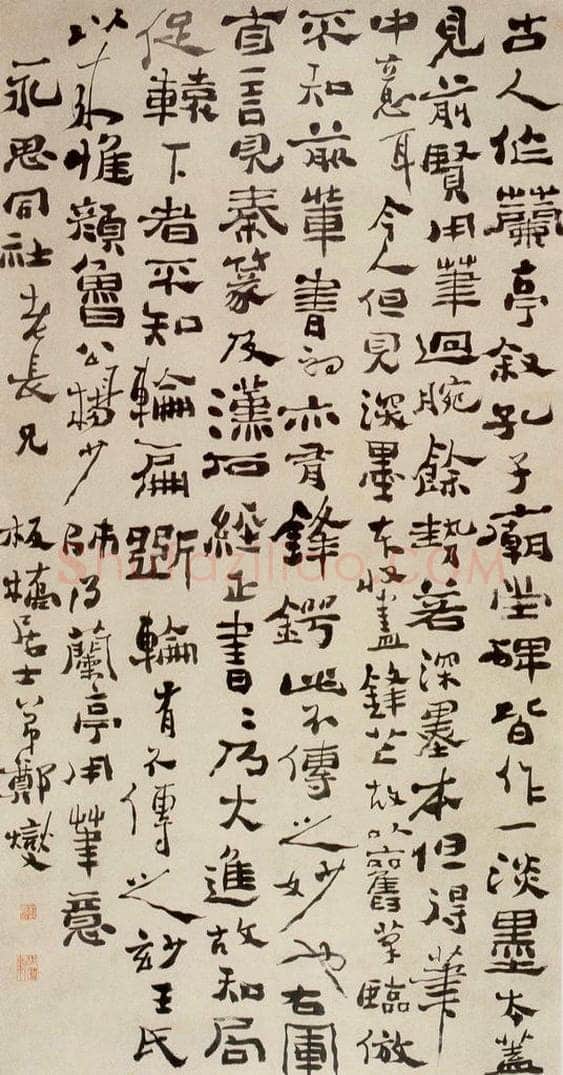 古人作蘭亭叙孔子廟堂碑皆作一淡墨本蓋
見前賢用筆迴腕餘勢若深墨本但得筆
中意耳今人但見深墨本收盡鋒芒故以舊筆臨倣
不知前輩書初亦有鋒鍔此不傳之妙也右軍
自言見秦篆及漢石經正書〻乃大進故知局
促轅下者不知輪扁斲輪有不傳之妙王氏
以來惟顔魯公楊少師得蘭亭用筆意
永思同社老長兄 板橋居士弟鄭燮